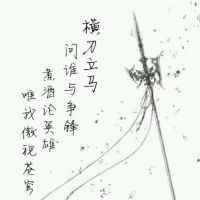 横刀立马
问谁与争锋
煮酒论英雄
唯我傲视苍穹